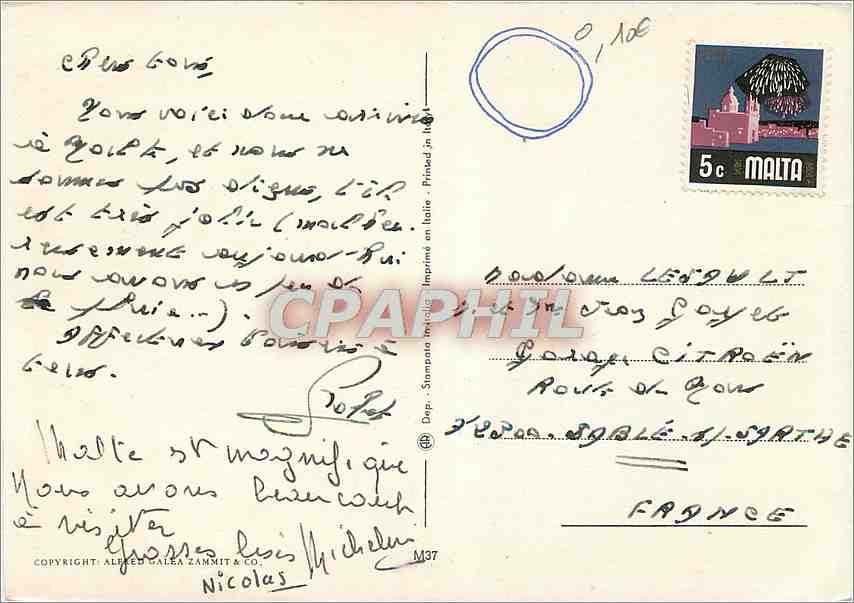 Chers tous,
Nous voici donc arrivés
à Malte, et nous ne
sommes pas déçus, l'île
est très jolie (malheu-
reusement aujourd'hui
nous avons un peu de
pluie...).
Affectueux baisers à
tous.
Malte est magnifique
Nous avons beaucoup
à visiter
Grosses bises Micheline
Nicolas
COPYRIGHT: ALFRED GALEA ZAMMIT & CO.
M37
Dep. - Stampato in Italia - Imprimé en Italie - Printed in Italy
CPAPHIL
0,10€
5c MALTA
Madame LESAULT
et Mr
Garage CITROËN
Route du Mans
72300. SABLÉ. s/. SARTHE
FRANCE